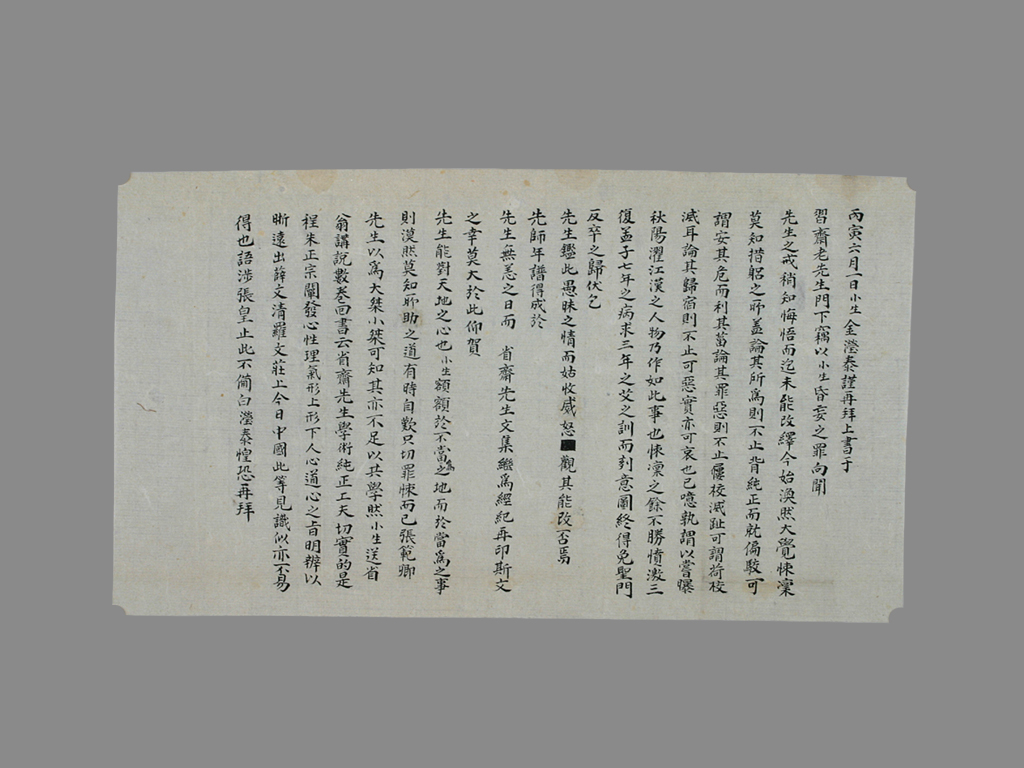 丙寅六月一日小生金瀅泰謹再拜上書于
習齋老先生門下竊以小生昏妄之罪向聞
先生之戒稍知悔悟而迄未能改繹今始渙然大覺悚凜
莫知措躬之所盖論其所為則不止背純正而就偏駁可
謂安其危而利其菑論其罪惡則不止屨校滅趾可謂荷校
滅耳論其歸宿則不止可惡實亦可哀也已噫孰謂以嘗曝
秋陽濯江漢之人物乃作如此事也悚凜之餘不勝憤激三
復孟子七年之病求三年之艾之訓而到意圖終得免聖門
反卒之歸伏乞
先生鑑此愚昧之情而姑收威怒 觀其能改否焉
先師年譜得成於
先生無恙之日而 省齋先生文集繼為經紀再印斯文
之幸莫大於此仰賀
先生能對天地之心也小生額額於不當為之地而於當為之事
則漠然莫知所助之道有時自歎只切罪悚而已張範卿
先生以為大桀小桀可知其亦不足以共學然小生送省
翁講說數卷回書云省齋先生學術純正工夫切實的是
程朱正宗闡發心性理氣形上形下人心道心之旨明辨以
晰遠出薛文清羅文莊上今日中國此等見識似亦不易
得也語涉張皇止此不備白瀅泰惶恐再拜